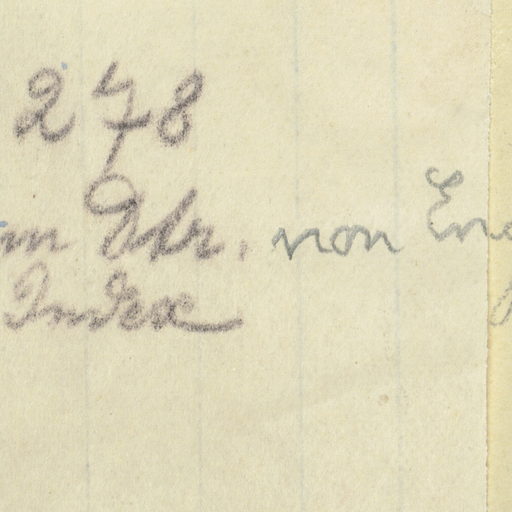 278
m Str. von Eng
Index